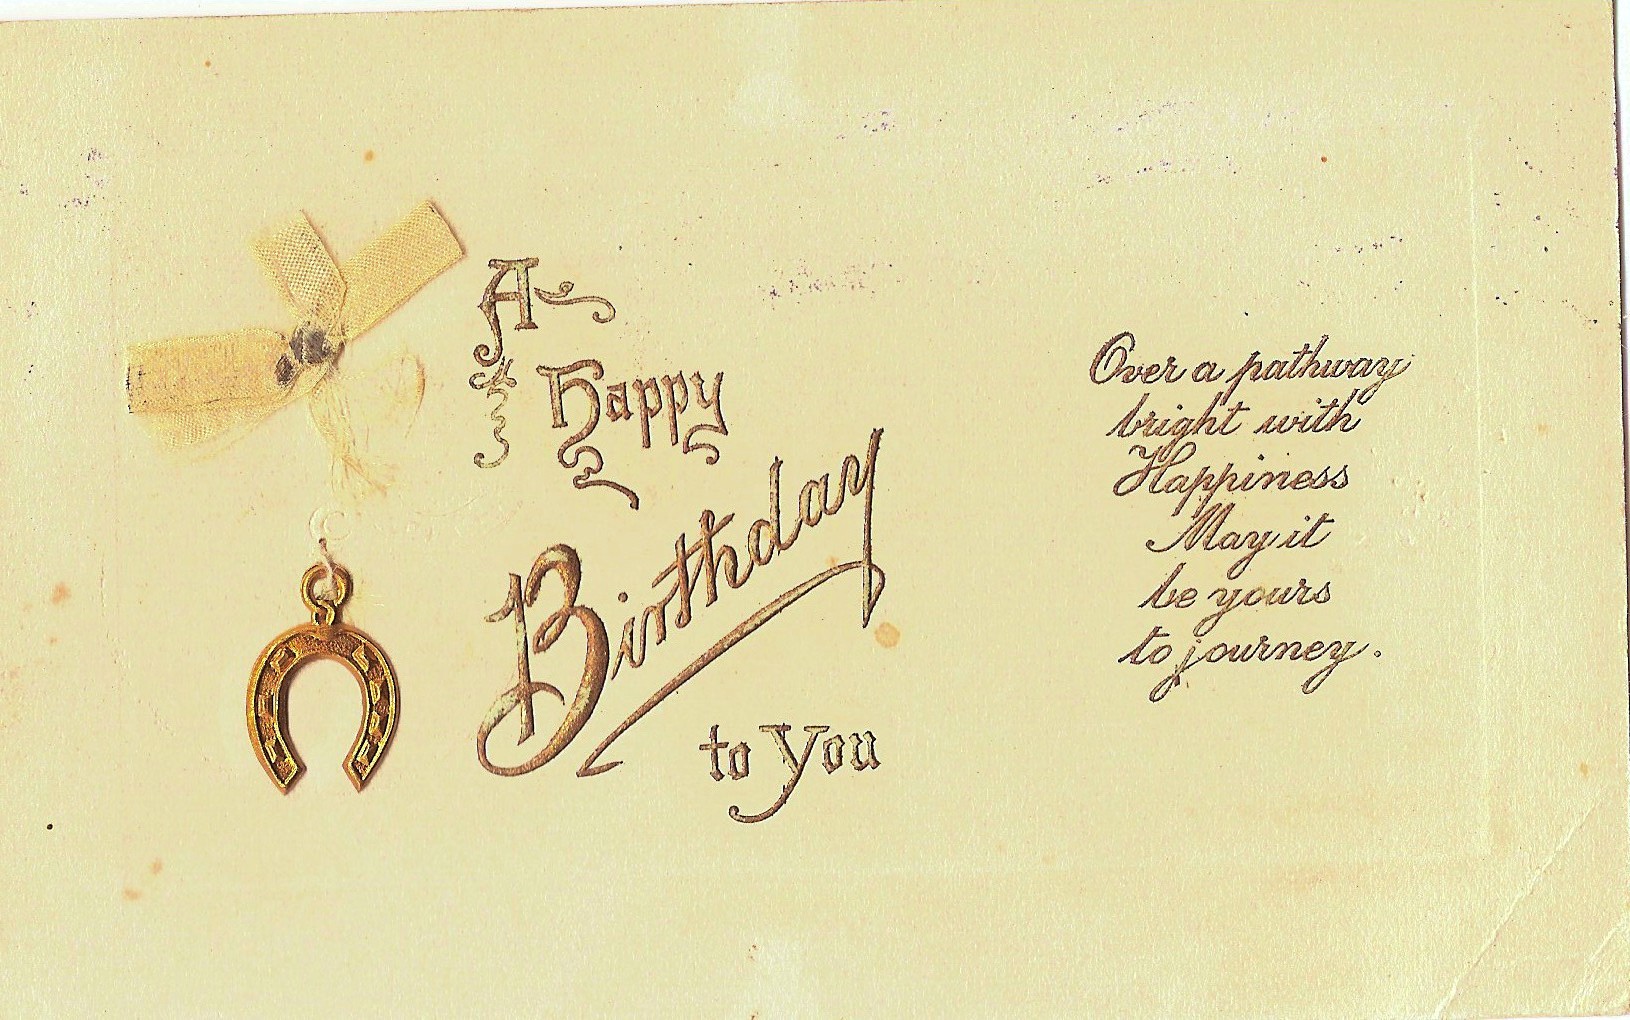 A
Happy
Birthday
to You
Over a pathway
bright with
Happiness
May it
be yours
to journey.